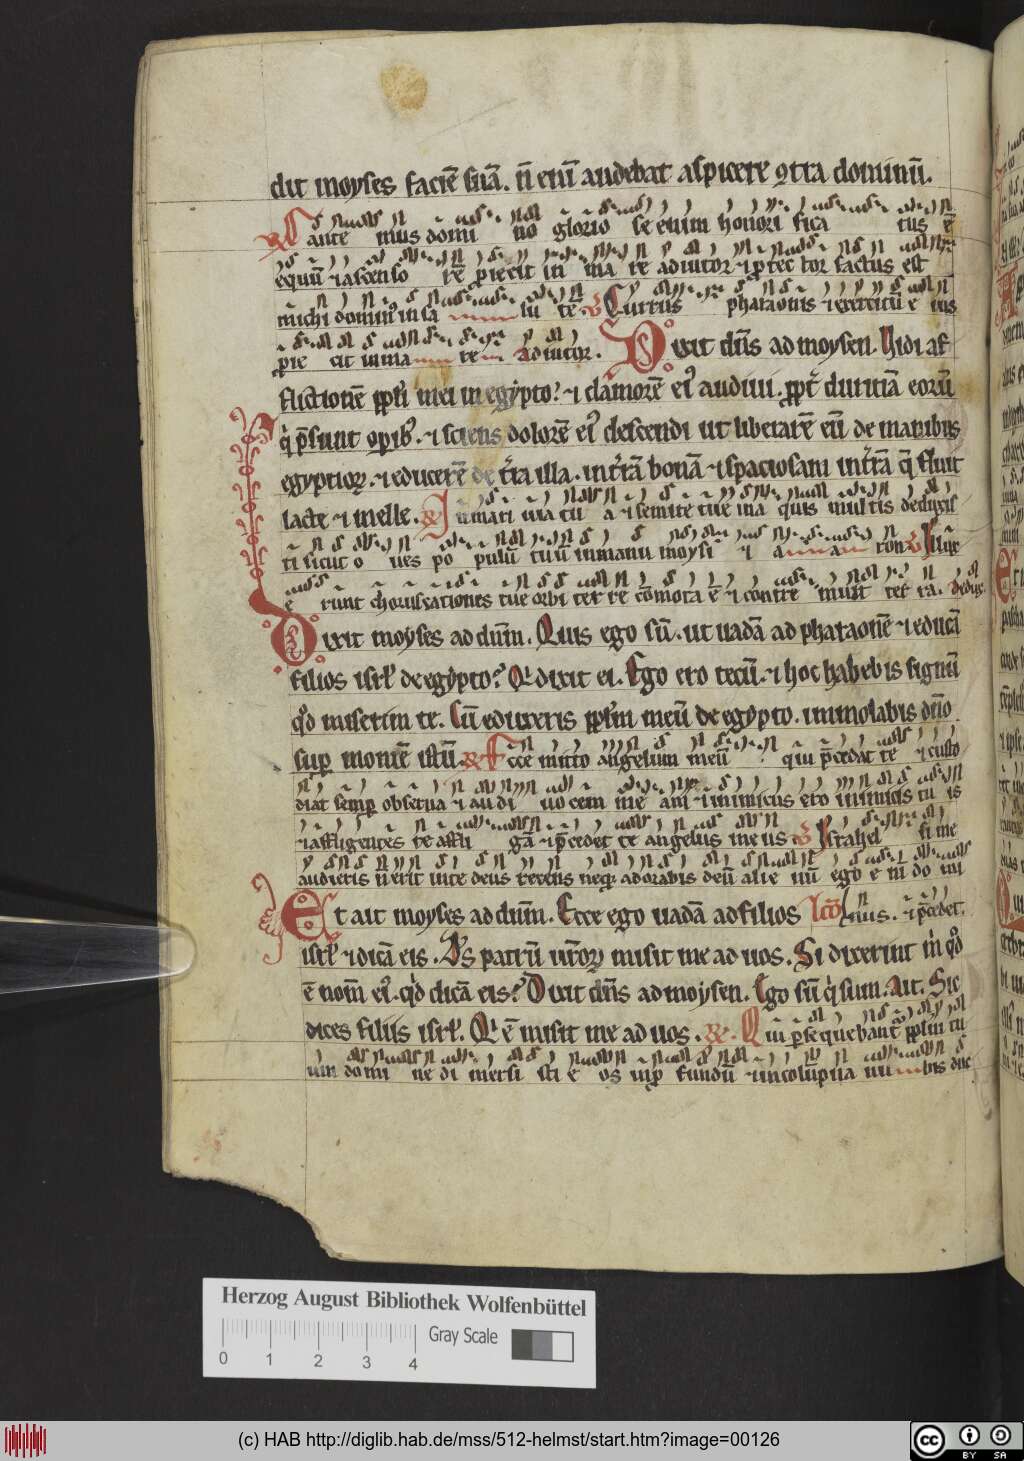 dit moyses faciē suā. n̄ eni᷈ audebat aspicere ꝯtra dominū.
Cante mus domi no glorio se enim honori fica tus ē
equū ⁊ ascenso rē proiecit in ma re adiutor ⁊ protec tor factus est
michi domin᷒ in sa lu tē Currus pharaonis ⁊ exercitū e ius
proie cit in ma re Adiutor. Dixit dn̄s ad moysen. Uidi af
flictionē ppl̄i mei in egypto. ⁊ clamorē ei᷒ audiui. ppt̄ duritiā eorū
q̇ p̄sunt opib᷒. ⁊ sciens dolorē ei᷒ descendi ut liberarē eū de manibus
egyptioꝝ. ⁊ educerē de t̄ra illa. in t̄rā bonā ⁊ spaciosam in t̄rā q̄ fluit
lacte ⁊ melle. In mari uia tu a ⁊ semite tue in a quis multis deduxis
ti sicut o ues po pulū tuū in manu moysi ⁊ a a ron Illux
e runt choruscationes tue orbi ter re cōmota ē ⁊ contre muit ter ra. Dedux
Dixit moyses ad dn̄m. Quis ego sū. ut uadā ad pharaonē ⁊ educā
filios isrl̄ de egypto? Q dixit ei. Ego ero tecū. ⁊ hoc habebis signū
qd̄ miserim te. Cū eduxeris ppl̄m meū de egypto. immolabis dn̄o
sup montē istū. Ecce mitto angelum meū qui p̄cedat te ⁊ custo
diat semp obserua ⁊ au di uo cem me am ⁊ inimicus ero inimicis tu is
⁊ affligentes te affli gā ⁊ p̄cedet te angelus me us Israhel si me
audieris n̄ erit in te deus recens neqꝫ adorabis deū alie nū ego e ni do mi
Et ait moyses ad dn̄m. Ecce ego uadā ad filios nus. ⁊ p̄cedet.
isrl̄ ⁊ dicā eis. Ds patrū ur̄oꝝ misit me ad uos. Si dixerint m̄ qd̄
ē nom̄ ei᷒. qd̄ dicā eis? Dixit dn̄s ad moysen. Ego sū q̇ sum. Ait. Sic
dices filiis isrl̄. Q ē misit me ad uos. Qui p̄sequebant᷒ ppl̄m tu
um domi ne di mersi sti e os in p fundū ⁊ in colūpna nu bis dux
Herzog August Bibliothek Wolfenbüttel
Gray Scale
0 1 2 3 4
(c) HAB http://diglib.hab.de/mss/512-helmst/start.htm?image=00126
cc BY SA